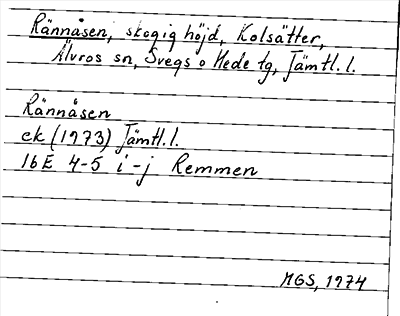 Rännåsen, skogig höjd, Kolsätter,
Älvros sn, Svegs o Hede tg, Jämtl. l.
Rännåsen
ek (1973) Jämtl. l.
16E 4-5 i-j Remmen
MGS, 1974